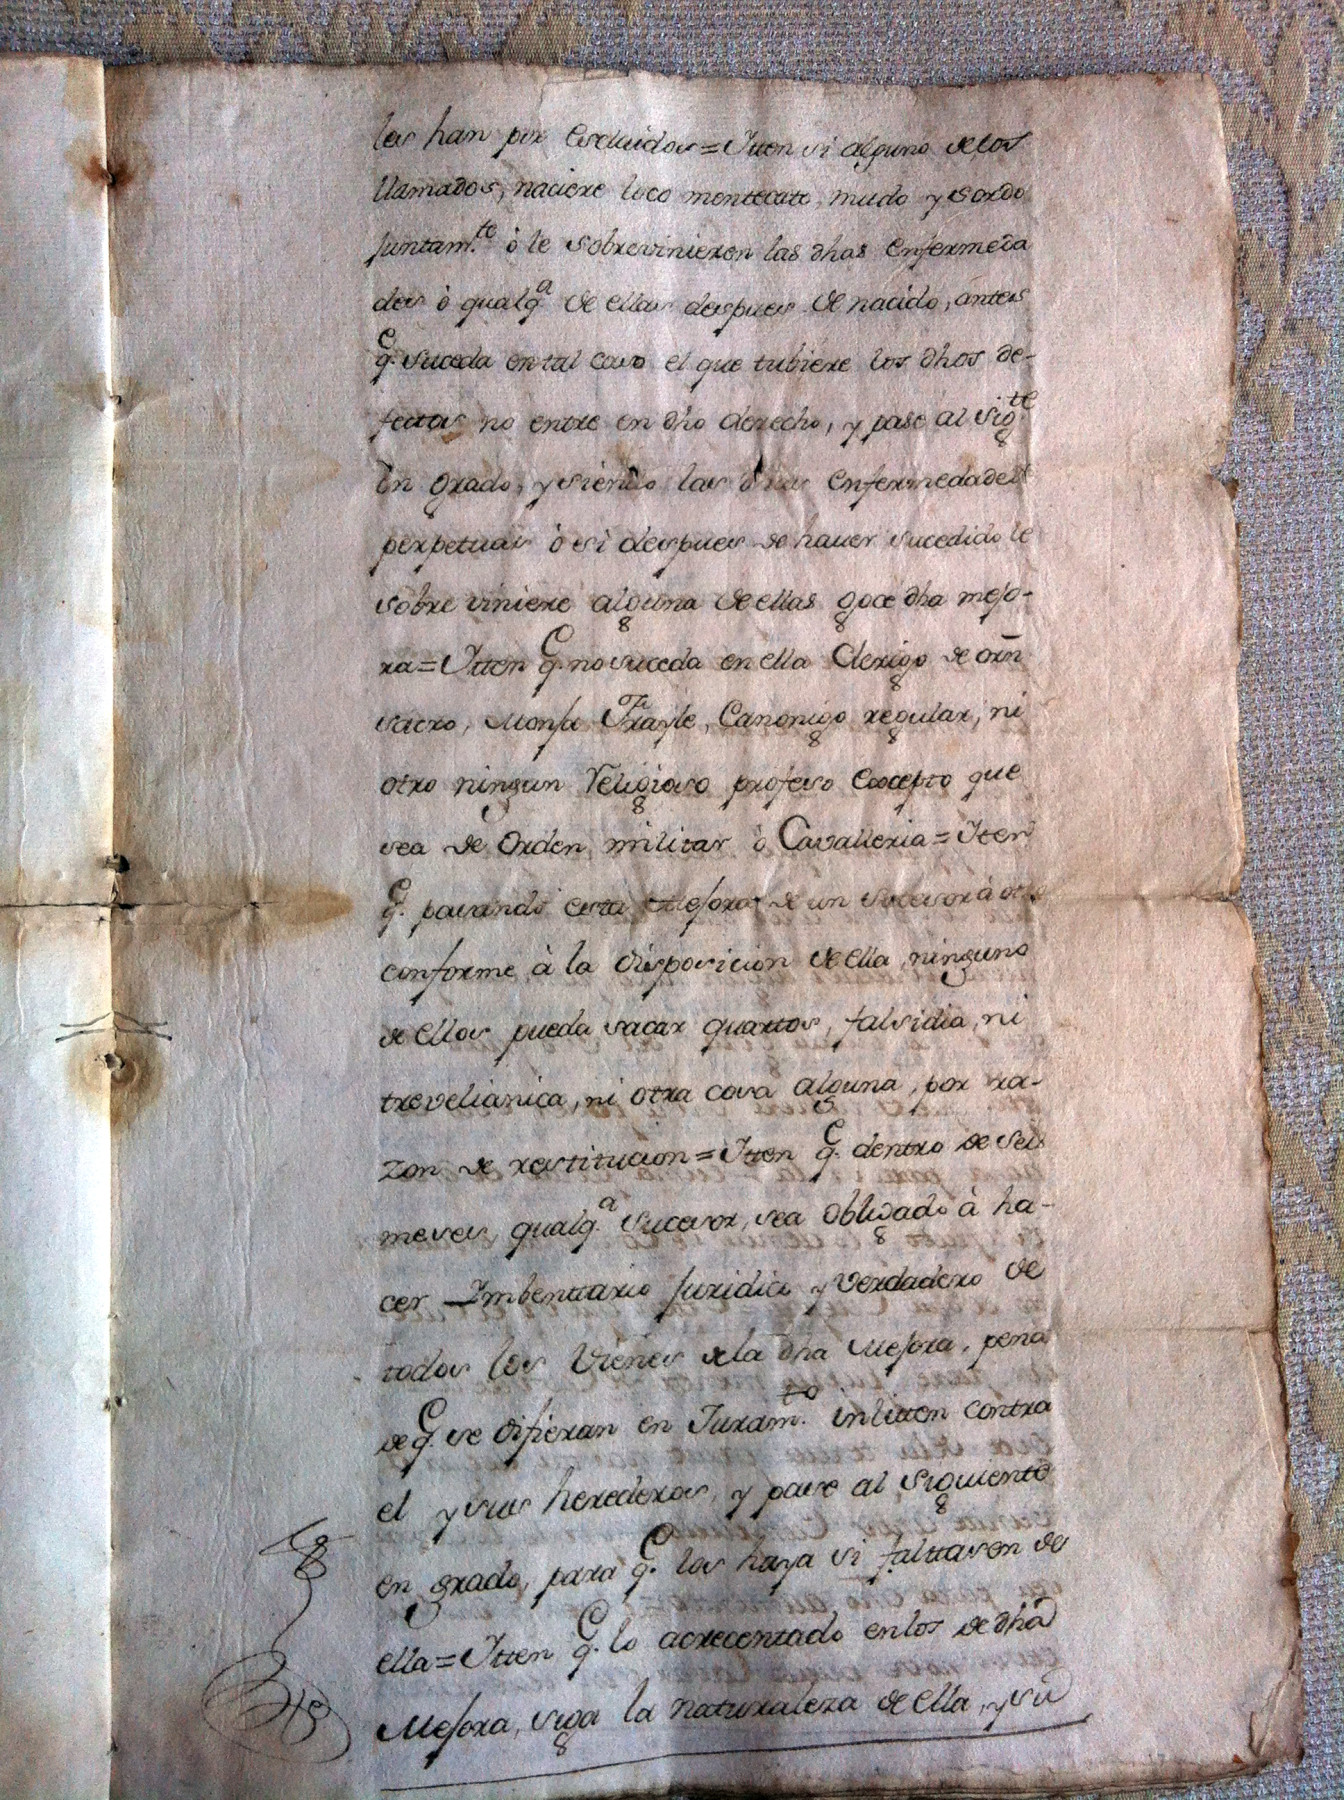 los han por Escluidos = Itten si alguno de los
llamados, naciere loco mentecato, mudo y sordo
juntam.te ò le sobrevinieren las dhas enfermeda
des ò qualq.a de ellas despues de nacido, antes
q. suceda en tal caso el que tubiere los dhos de-
fectos no entre en dho derecho, y pase al sig.te
en grado, y siendo las dhas enfermedades
perpetuas ò si despues de haver sucedido le
sobre viniere alguna de ellas goce dha mejo-
ra = Itten q. no suceda en ella Clerigo de orn
sacro, Monje Frayle, Canonigo regular, ni
otro ningun Religioso profeso Excepto que
sea de Orden militar ò Cavalleria = Iten
q. pasando esta Mejora de un subcesor à otro
conforme à la disposicion de ella ninguno
de ellos pueda sacar quartos, falsidia, ni
trevelianica, ni otra cosa alguna, por ra-
zon de restitucion = Itten q. dentro de seis
meses qualq.a sucesor, sea obligado à ha-
cer Imbenttario juridico y verdadero de
todos los Vienes de la dha Mejora, pena
de q. se difieran en Juram.to inlitten contra
el y sus herederos, y pase al siguiente
en grado, para q. los haya si falttasen de
ella = Itten q. lo acrecentado en los de dha
Mejora, siga la naturaleza de ella, y si